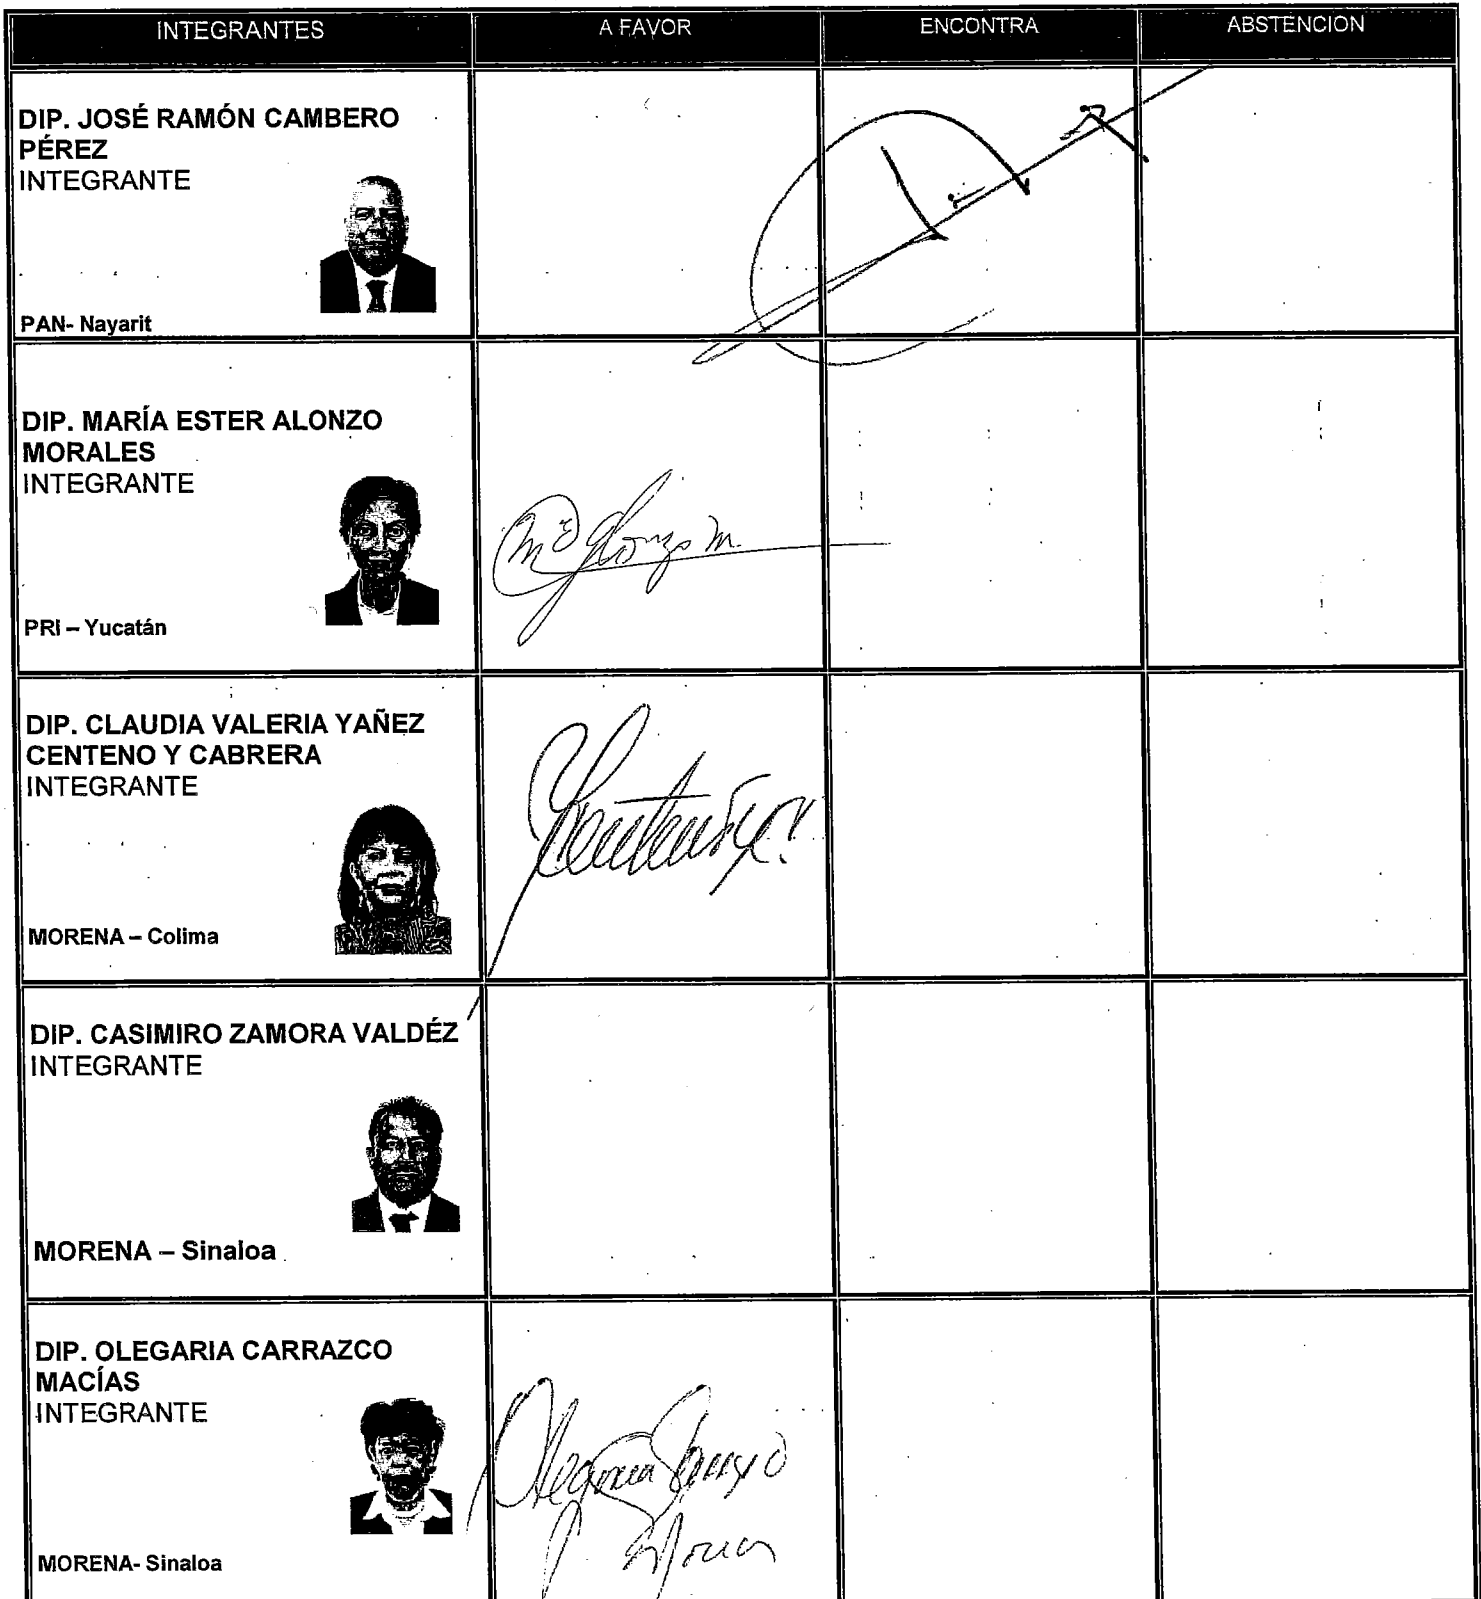 INTEGRANTES A FAVOR ENCONTRA ABSTENCION
DIP. JOSÉ RAMÓN CAMBERO
PÉREZ
INTEGRANTE
PAN- Nayarit
DIP. MARÍA ESTER ALONZO
MORALES
INTEGRANTE
Mª Alonzo M.
PRI – Yucatán
DIP. CLAUDIA VALERIA YAÑEZ
CENTENO Y CABRERA
INTEGRANTE
MORENA – Colima
DIP. CASIMIRO ZAMORA VALDÉZ
INTEGRANTE
MORENA – Sinaloa
DIP. OLEGARIA CARRAZCO
MACÍAS
INTEGRANTE
Olegaria Carrazco
MORENA- Sinaloa